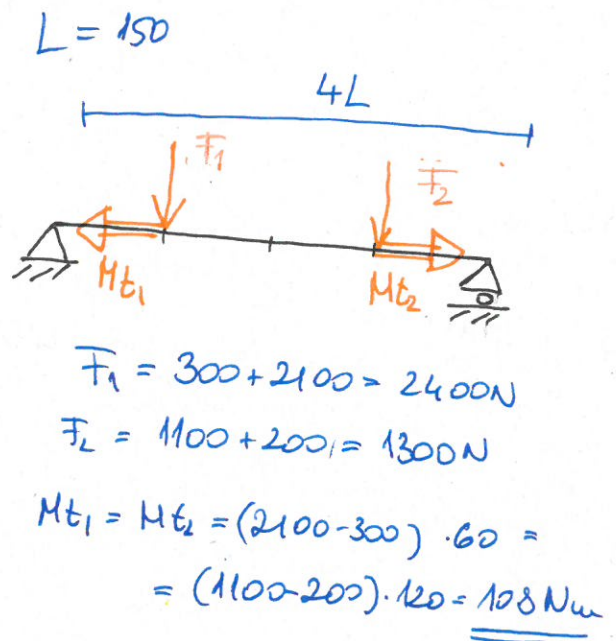 L = 150
4L
F1
F2
Mt1
Mt2
F1 = 300+2100 = 2400N
F2 = 1100+200 = 1300N
Mt1 = Mt2 = (2100-300) ·60 =
= (1100-200)·120 = 108 Nm